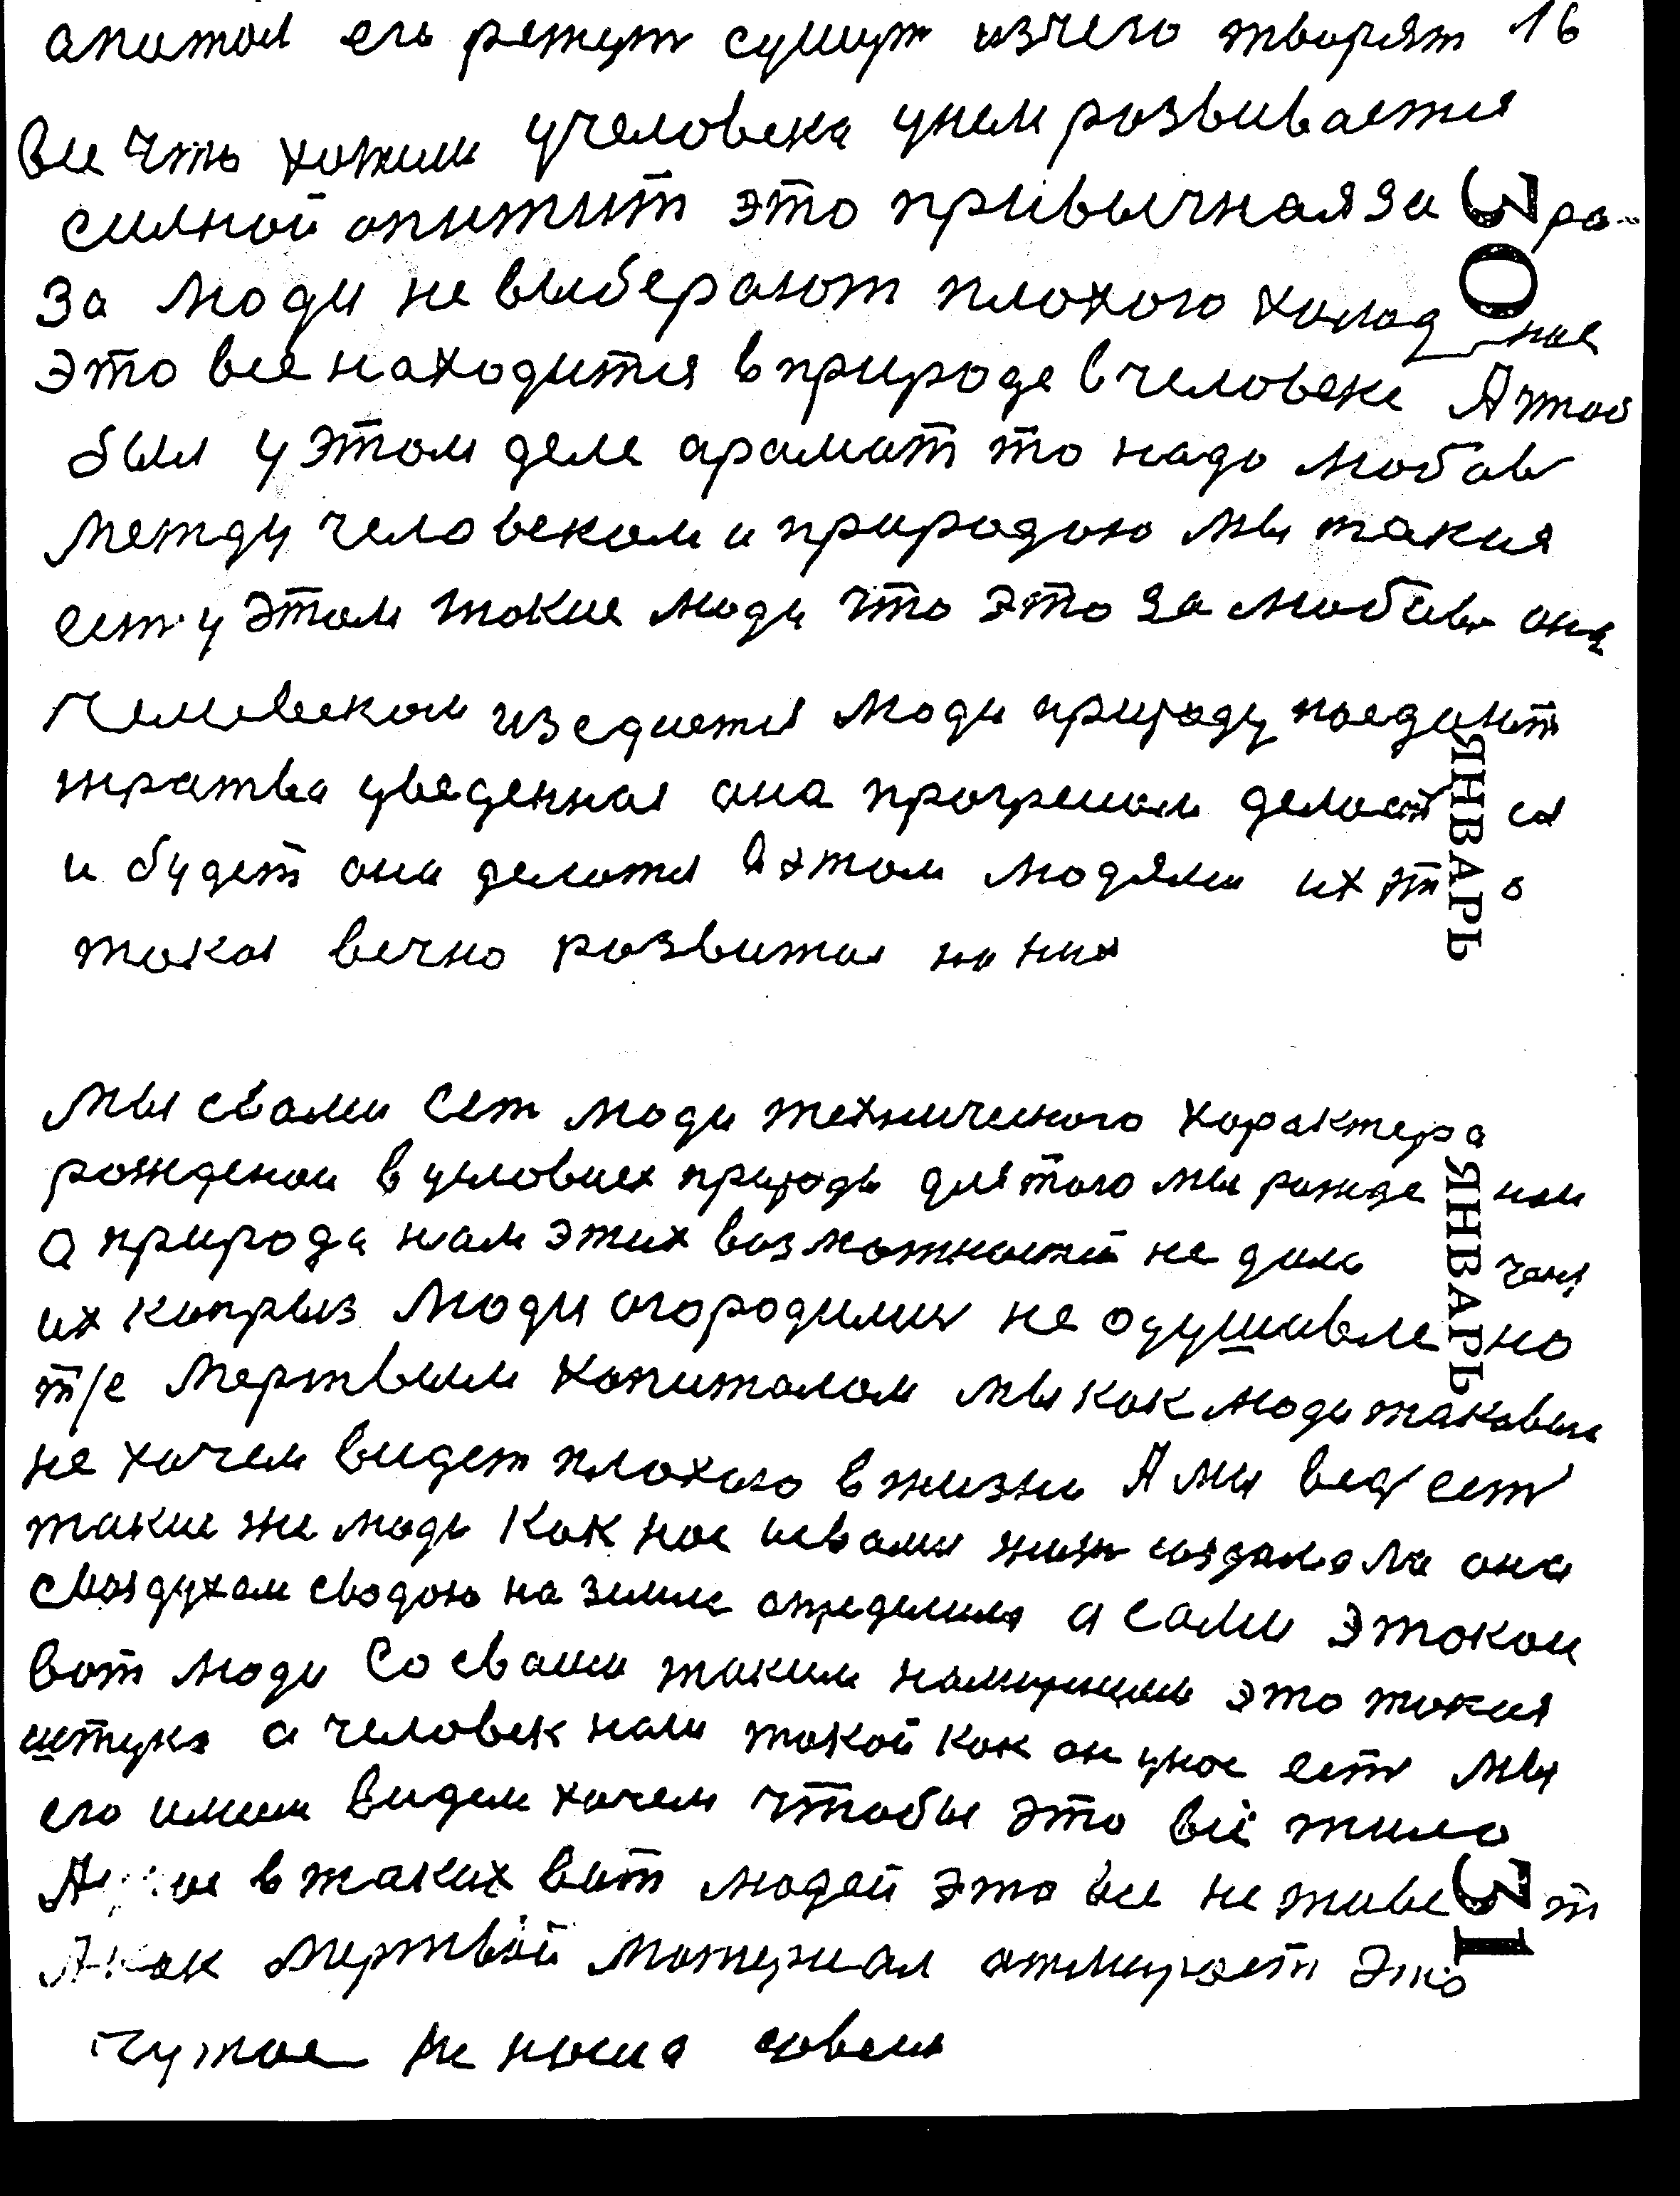 апатом его режут сушут изчего творят 16
все что хотим учеловека унем развивается
силной апитит это привычная за ра-
за люди невыберают плохого холод ное
это все находится вприроде вчеловеке А чтоб
был у этом деле арамат то надо любов
между человеком и природою мы такия
ест у этом такие люди что это за любовь она
человеком изедается люди природу поедают
жратва уведенная она прогресом делает ся
и будет она делатся А этом людями их эт о
такая вечно развитая на них
мы свами ест люди технического характера
рожденаи в условиях природы длятого мы рожде наи
а природа нам этих возможностей не дала
их капрыз люди огородилис не одушавле но
т/е мертвым капиталом мы как люди таковые
не хочем видет плохого в жизни А мы вед ест
такие же люди как нас свами жизн создавала она
свождухам сводою на земле определила а сами этокаи
вот люди со сваими такими намерениями это такия
штука а человек нам такой как он унас ест мы
его имеем видем хочем чтобы это всё жило
в таких вот людей это все не живе т
А как мертвой материал атмирает это
чужое не наша совсем
30
ЯНВАРЬ
ЯНВАРЬ
31